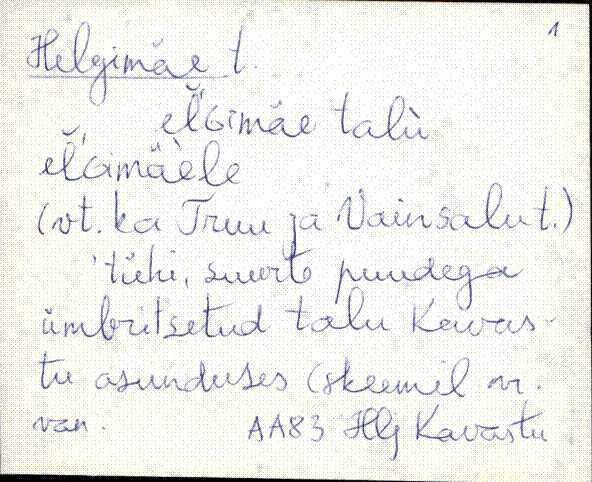 1
Helgimäe t.
el̆'gimäe talù
el̆'gimäèle
(vt. ka Truu ja Vainsalu t.)
'tühi, suurte puudega
ümbritsetud talu Kavas-
tu asunduses (skeemil nr.
van.
AA83 Hlj Kavastu